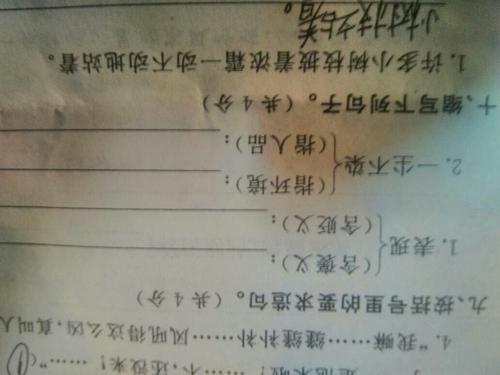 是他来啦！……不，还没来！……”（
4. “我嘛……缝缝补补……风听得这么凶，真叫人
九、按括号里的要求造句。（共 4 分）
1. 表现
（含褒义）：
（含贬义）：
2. 一尘不染
（指环境）：
（指人品）：
十、缩写下列句子。（共 4 分）
1. 许多小树枝披着浓霜一动不动地站着。
小树枝站着。